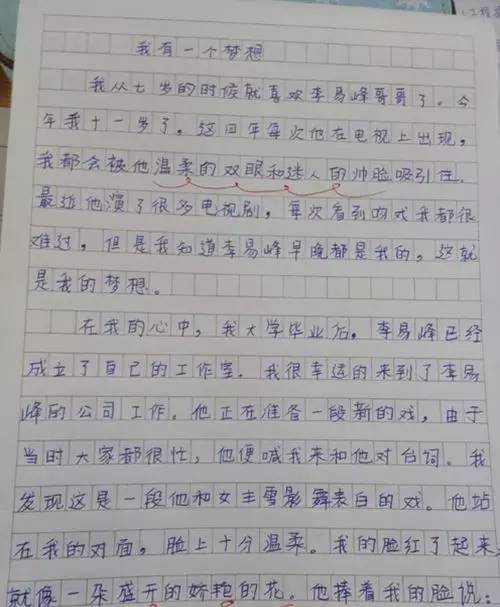 我有一个梦想
我从七岁的时候就喜欢李易峰哥哥了。今
年我十一岁了。这四年每次他在电视上出现，
我都会被他温柔的双眼和迷人的帅脸吸引住.
最近他演了很多电视剧，每次看到吻戏我都很
难过，但是我知道李易峰早晚都是我的，这就
是我的梦想。
在我的心中，我大学毕业后，李易峰已经
成立了自己的工作室.我很幸运的来到了李易
峰的公司工作.他正在准备一段新的戏，由于
当时大家都很忙，他便喊我来和他对台词。我
发现这是一段他和女主雪影舞表白的戏。他站
在我的对面，脸上十分温柔。我的脸红了起来
就像一朵盛开的娇艳的花。他捧着我的脸说：